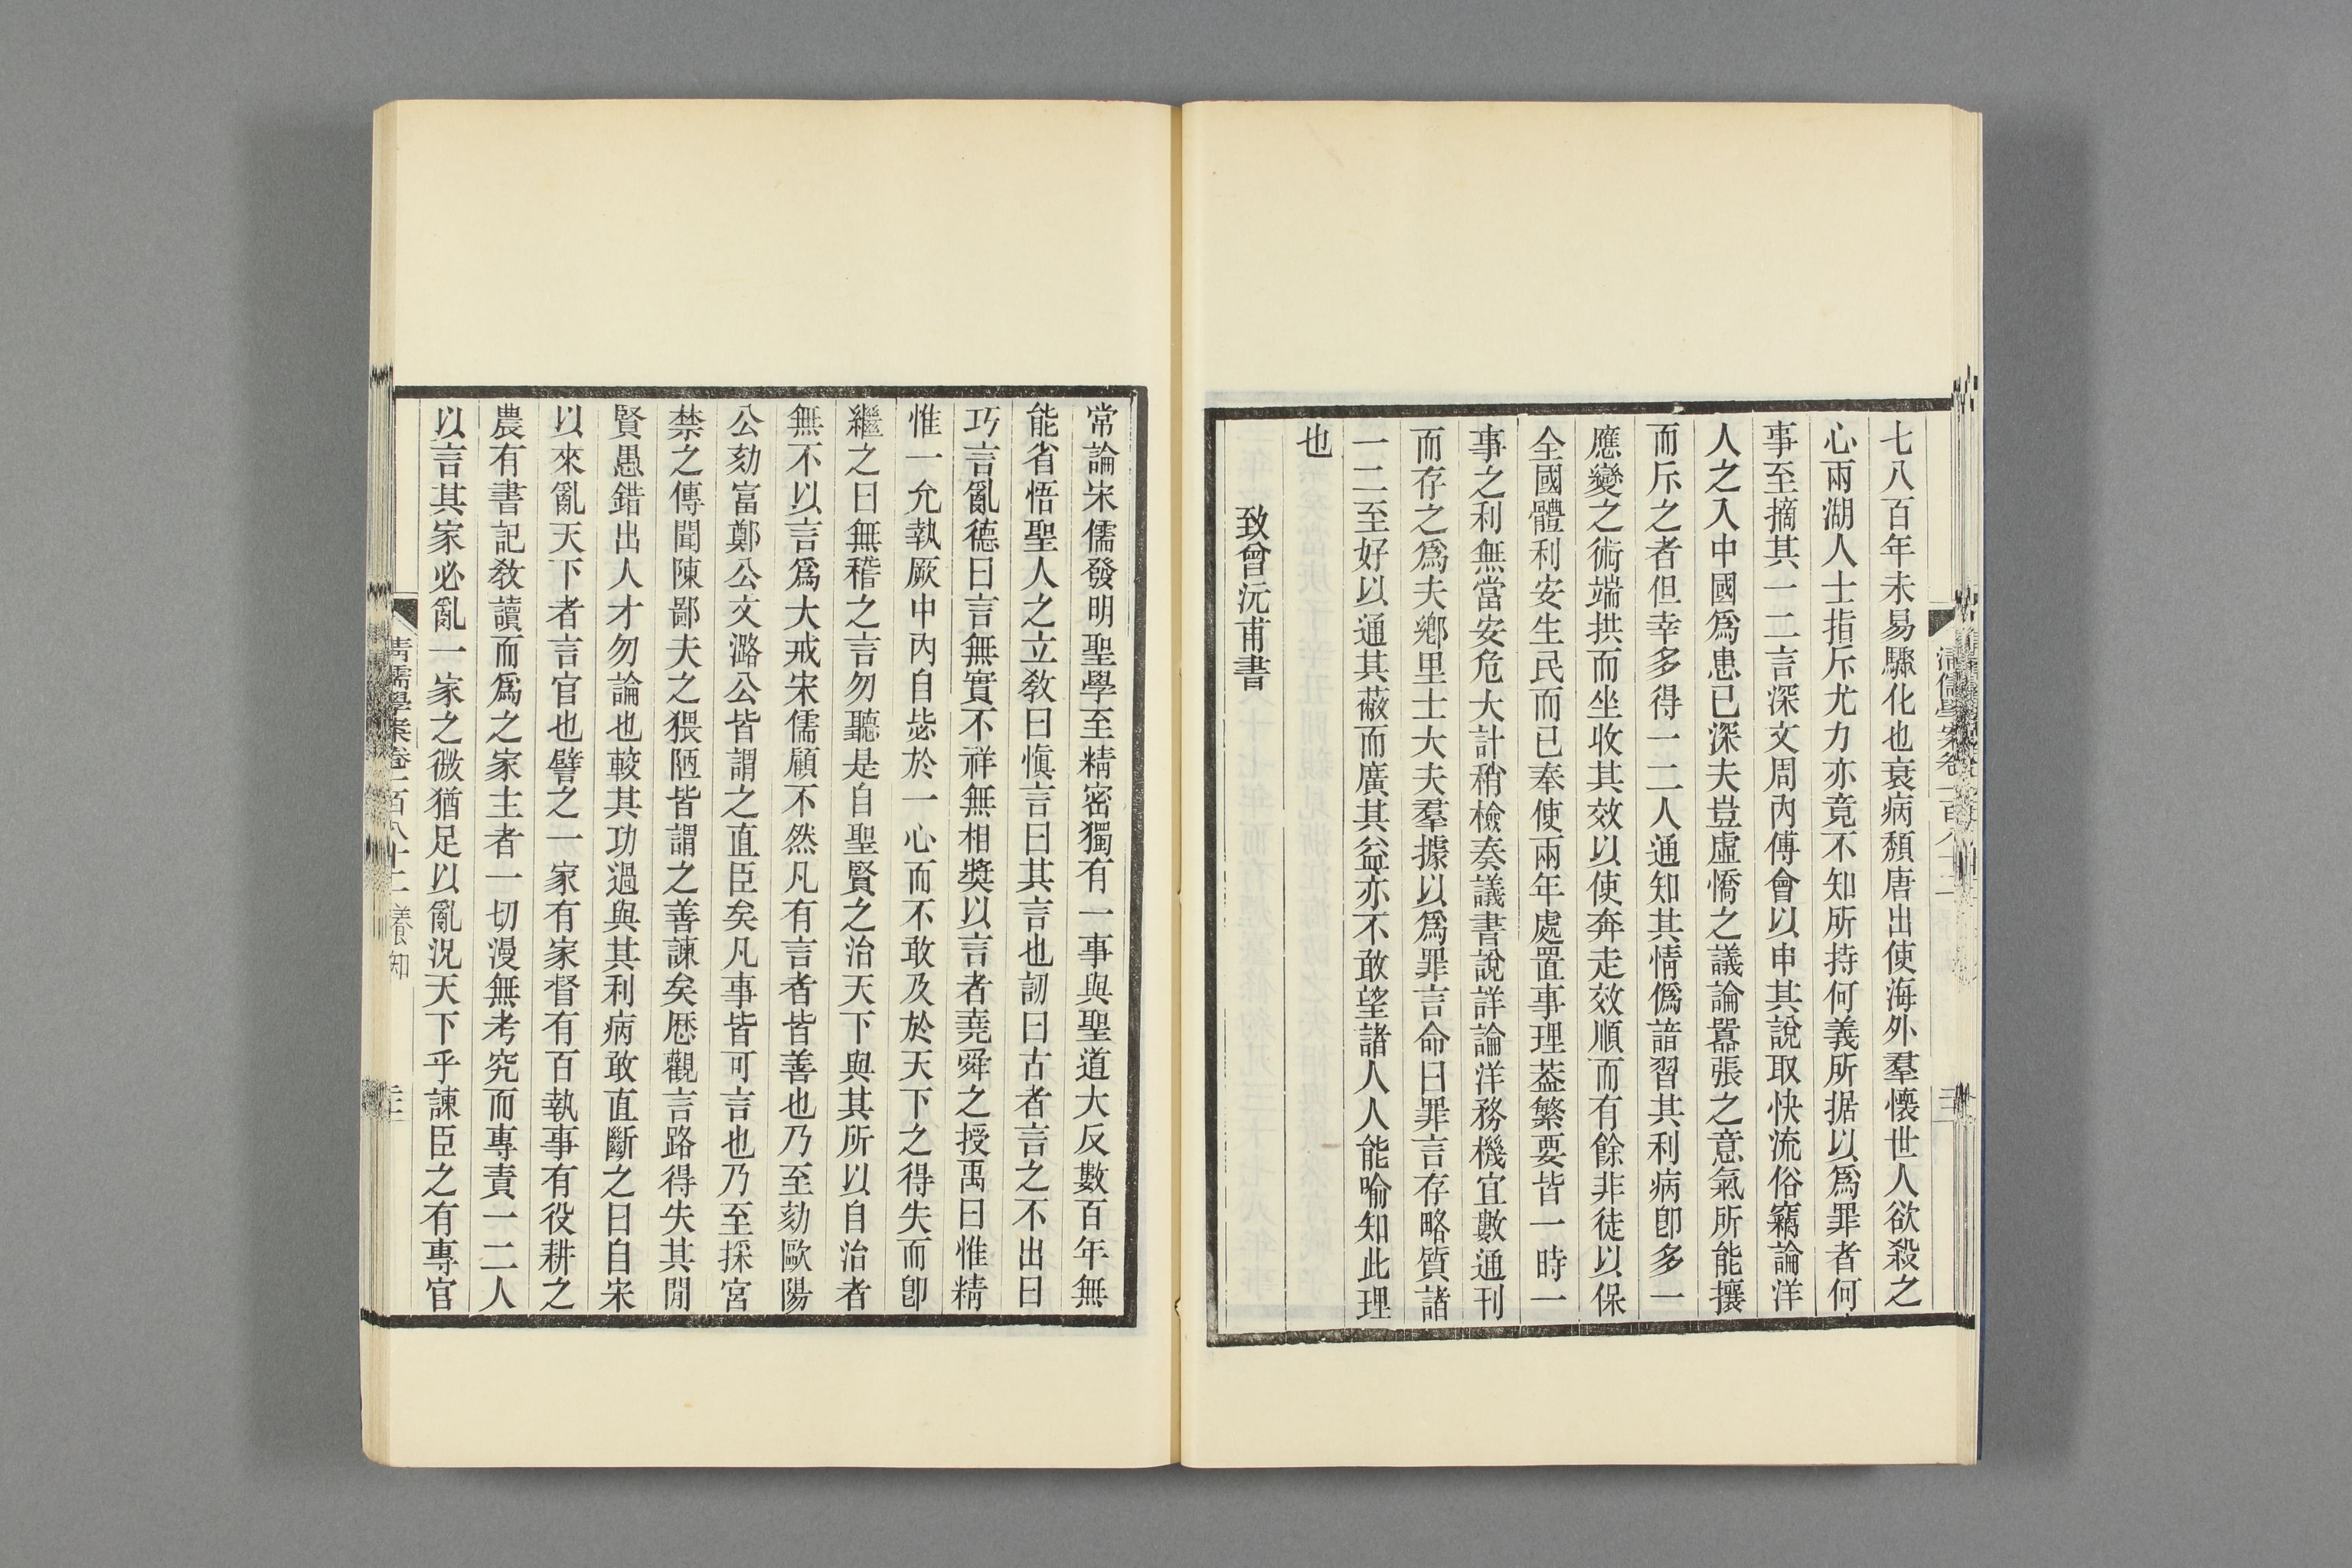 七八百年未易驟化也衰病頹唐出使海外羣懷世人欲殺之
心兩湖人士指斥尤力亦竟不知所持何義所据以爲罪者何
事至摘其一二言深文周內傅會以申其說取快流俗竊論洋
人之入中國爲患已深夫豈虛憍之議論囂張之意氣所能攘
而斥之者但幸多得一二人通知其情僞諳習其利病卽多一
應變之術端拱而坐收其效以使奔走效順而有餘非徒以保
全國體利安生民而已奉使兩年處置事理蓋繁要皆一時一
事之利無當安危大計稍檢奏議書說詳論洋務機宜數通刊
而存之爲夫鄉里士大夫羣據以爲罪言命曰罪言存略質諸
一二至好以通其蔽而廣其益亦不敢望諸人人能喻知此理
也
致曾沅甫書
常論宋儒發明聖學至精密獨有一事與聖道大反數百年無
能省悟聖人之立敎曰愼言曰其言也訒曰古者言之不出曰
巧言亂德曰言無實不祥無相獎以言者堯舜之授禹曰惟精
惟一允執厥中內自毖於一心而不敢及於天下之得失而卽
繼之曰無稽之言勿聽是自聖賢之治天下與其所以自治者
無不以言爲大戒宋儒顧不然凡有言者皆善也乃至劾歐陽
公劾富鄭公文潞公皆謂之直臣矣凡事皆可言也乃至採宮
禁之傳聞陳鄙夫之猥陋皆謂之善諫矣歷觀言路得失其閒
賢愚錯出人才勿論也較其功過與其利病敢直斷之曰自宋
以來亂天下者言官也譬之一家有家督有百執事有役耕之
農有書記敎讀而爲之家主者一切漫無考究而專責一二人
以言其家必亂一家之微猶足以亂況天下乎諫臣之有專官
清儒學案卷一百八十二 養知